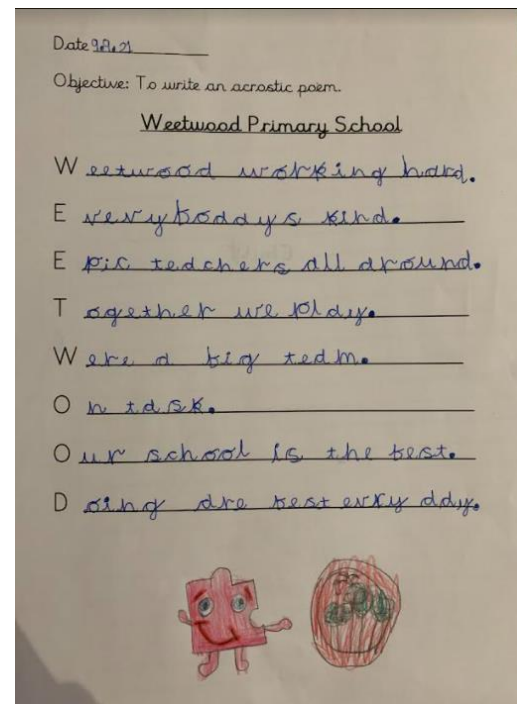 Date 9.9.21
Objective: To write an acrostic poem.
Weetwood Primary School
Weetwood working hard.
E veryboddys kind.
Epic teachers all around.
Together we play.
Were a big team.
On task.
Our school is the best.
Doing are best evry day.